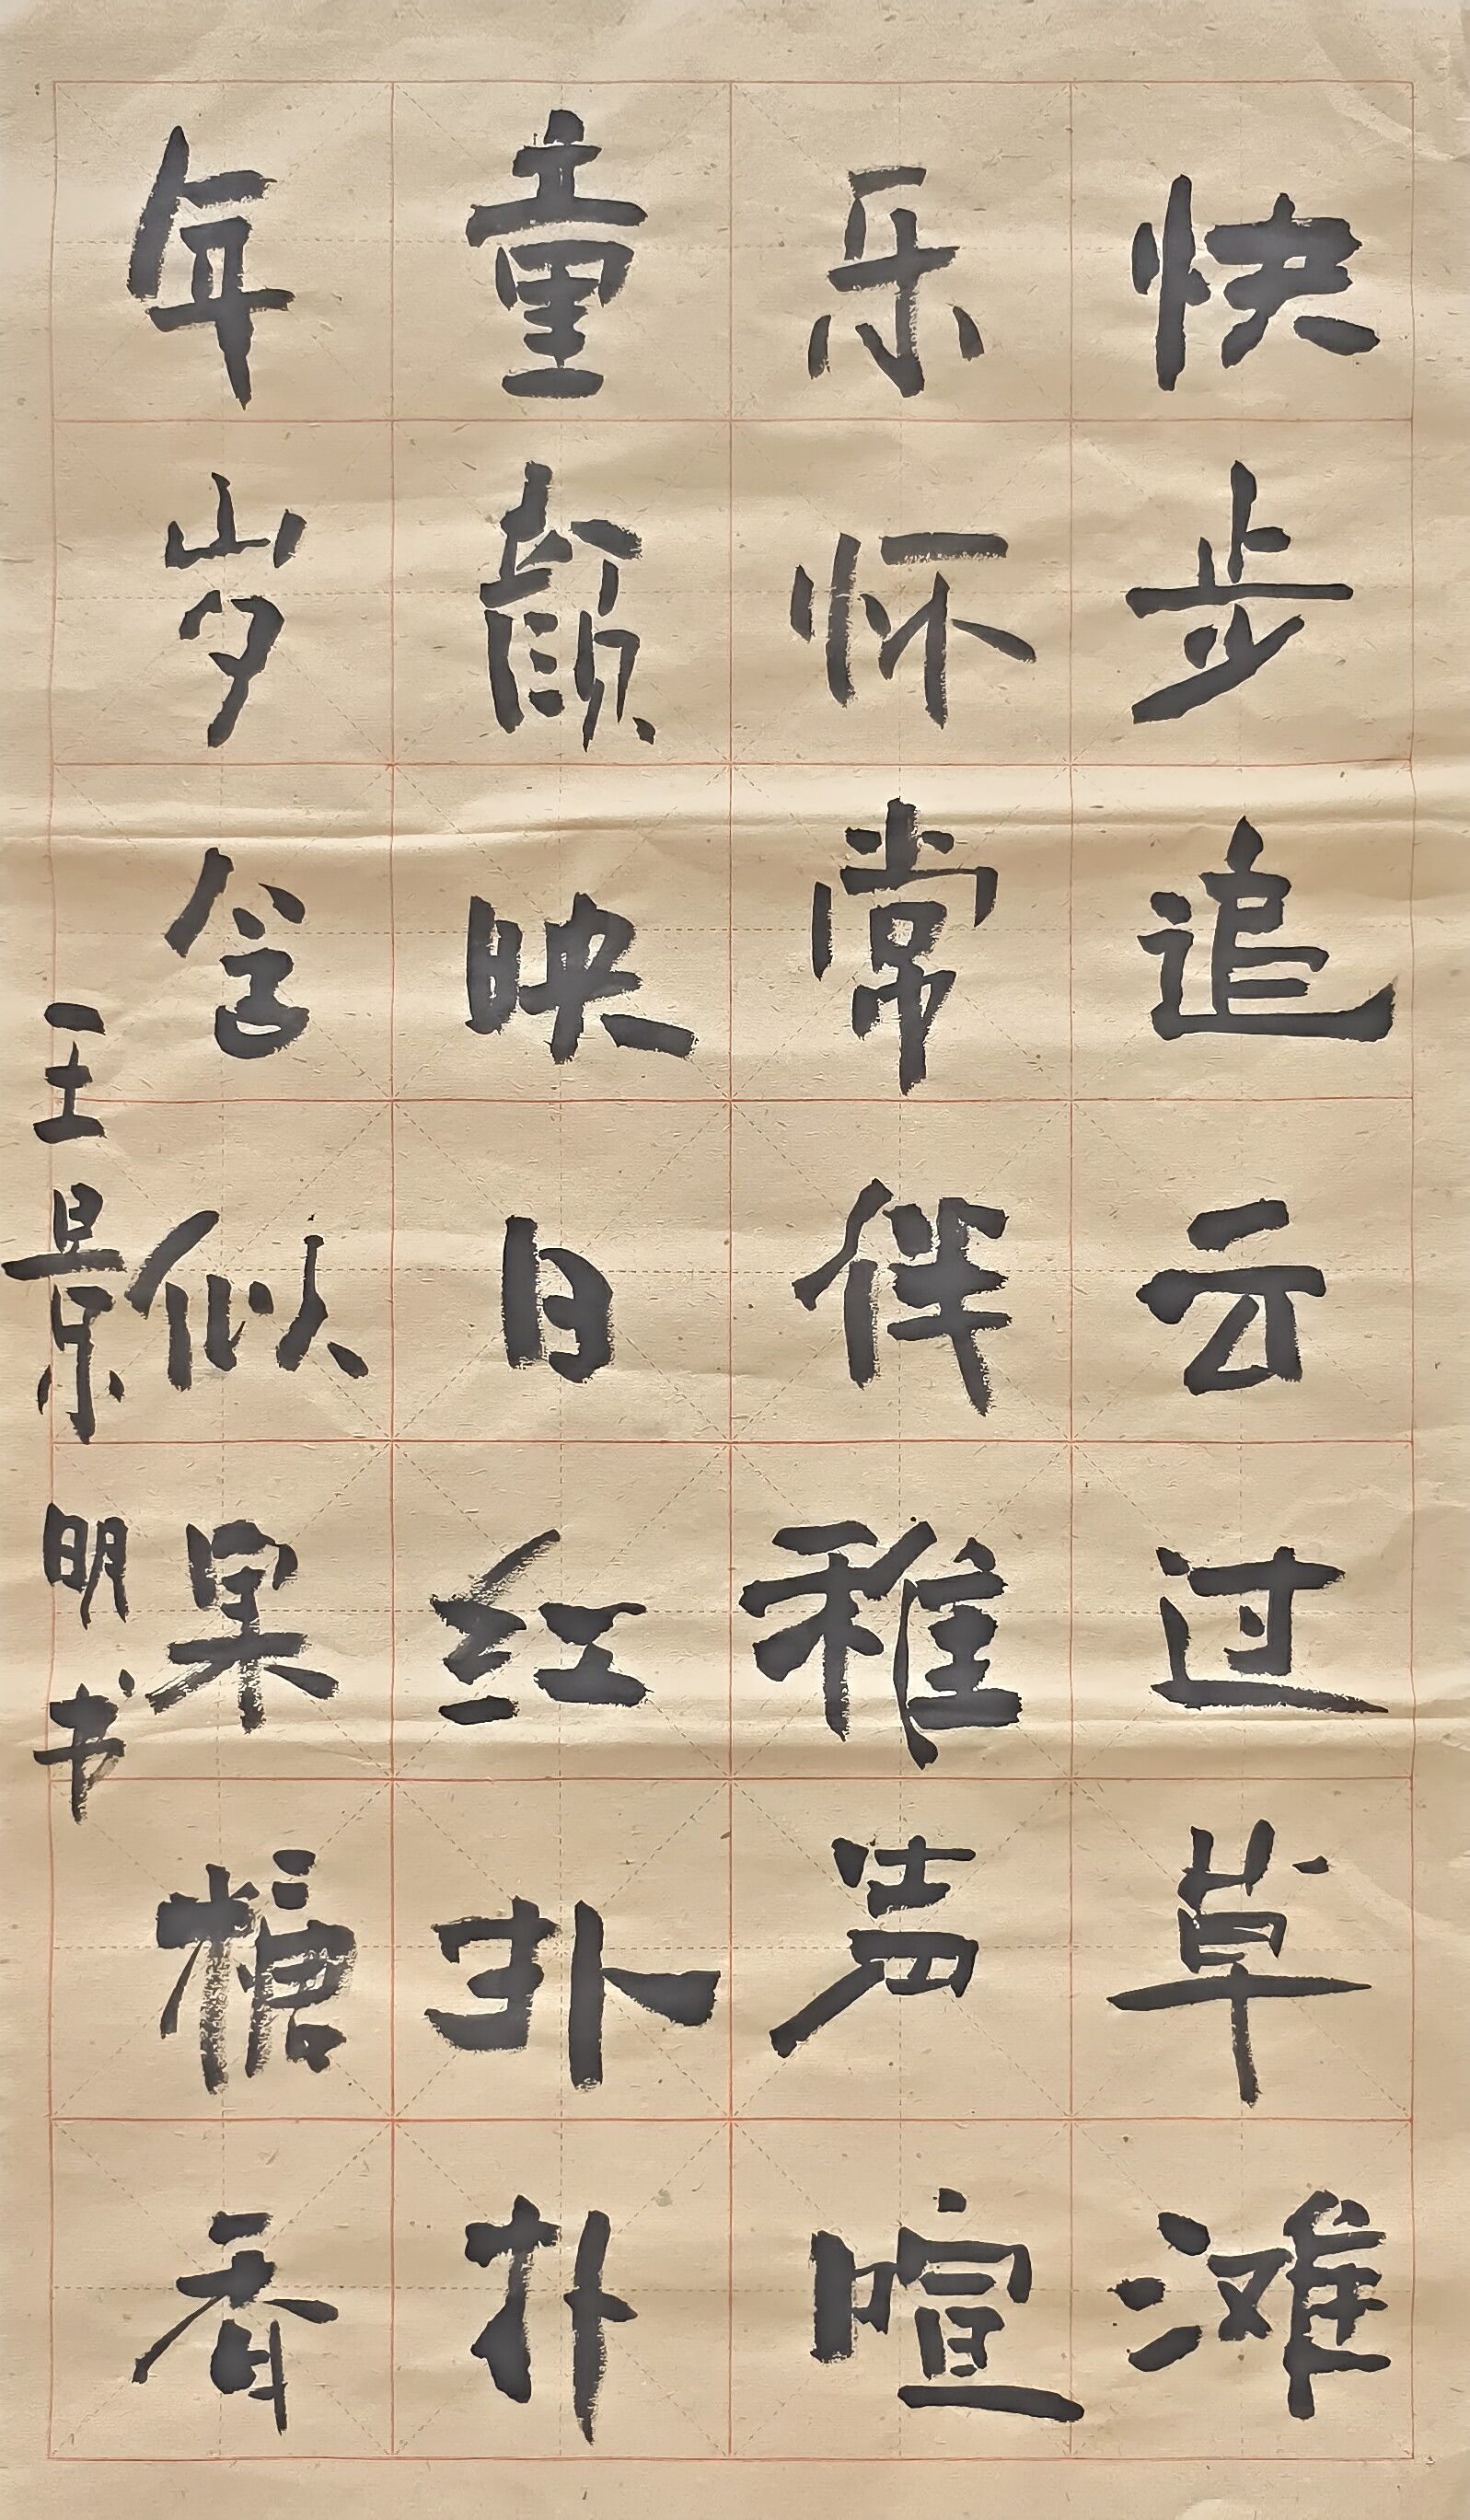 快步追云过草滩
乐怀常伴稚声喧
童颜映日红扑扑
年岁含似果糖香
王景明书